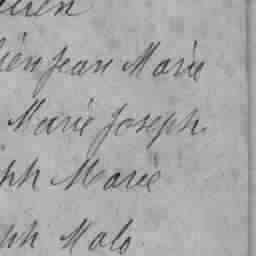 ien Jean Marie
Marie Joseph
ph Marie
ph Malo